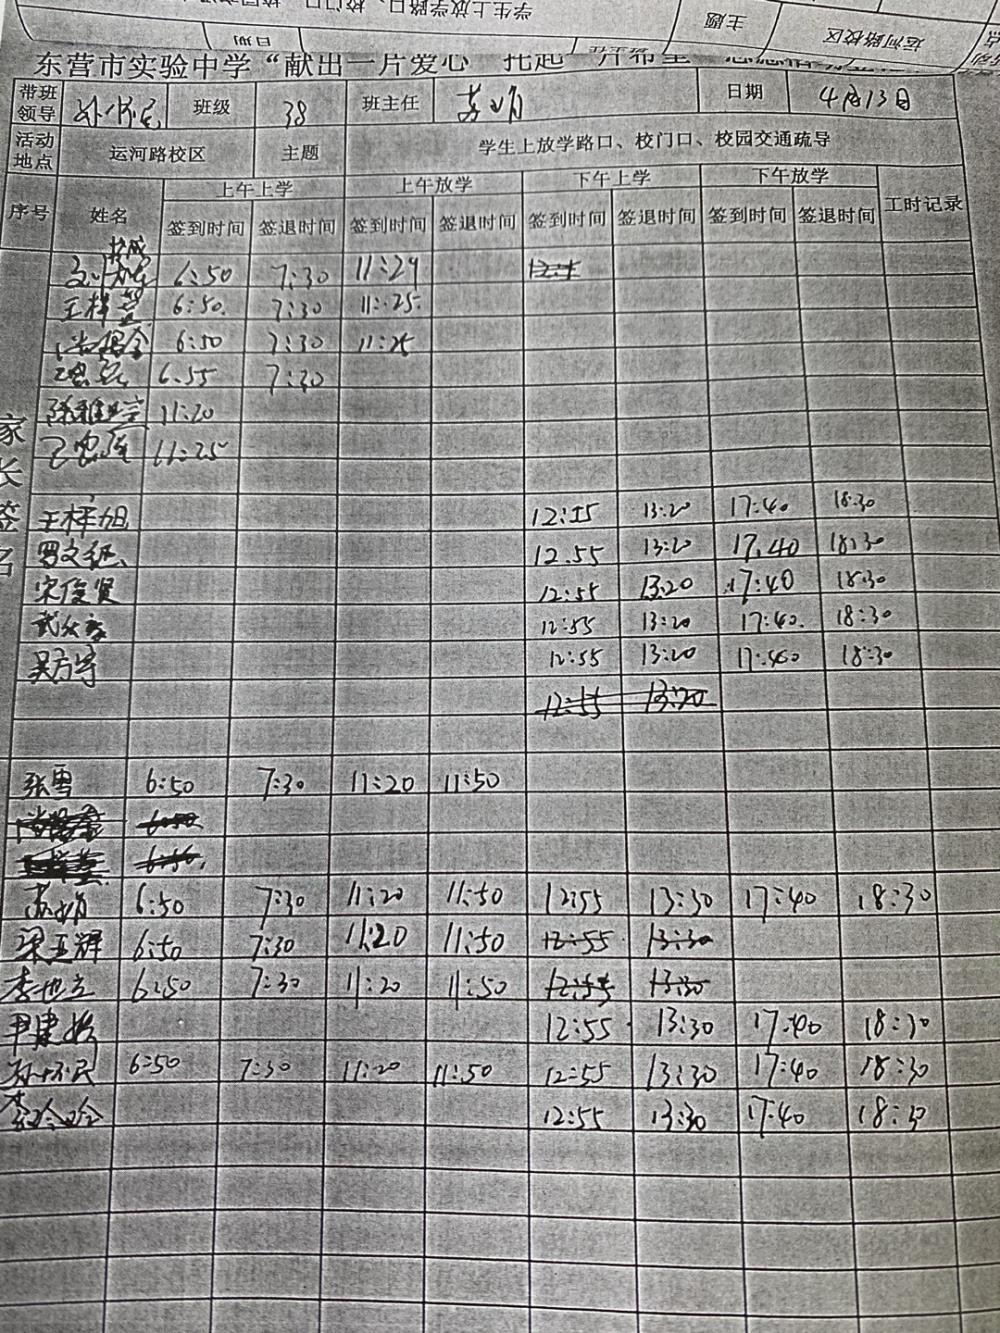 学生上放学路口、校门口、校园
主题
运河路校区
日期
东营市实验中学“献出一片爱心 托起一片希望”志愿
带班领导 孙怀民 班级 38 班主任 苏娟 日期 4月13日
活动地点 运河路校区 主题 学生上放学路口、校门口、校园交通疏导
序号 姓名 上午上学 上午放学 下午上学 下午放学 工时记录
签到时间 签退时间 签到时间 签退时间 签到时间 签退时间 签到时间 签退时间
家长签名
6:50 7:30 11:29
王梓萱 6:50. 7:30 11:25.
6:50 7:30 11:25
6.55 7:30
11:20
11:25
王梓旭 12:55 13:20 17:40 18:30
罗文 12.55 13:20 17.40 18:30
宋俊贤 12:55 13:20 17:40 18:30
武 12:55 13:20 17:40. 18:30
吴方宇 12:55 13:20 17:40 18:30
12:55 13:20
张雪 6:50 7:30 11:20 11:50
6:50
6:50.
苏娟 6:50 7:30 11:20 11:50 12:55 13:30 17:40 18:30
梁亚辉 6:50 7:30 11:20 11:50 12:55 13:30
李世立 6:50 7:30 11:20 11:50 12:55 13:30
尹建 12:55 13:30 17:40 18:30
孙怀民 6:50 7:30 11:20 11:50 12:55 13:30 17:40 18:30
12:55 13:30 17:40 18:30